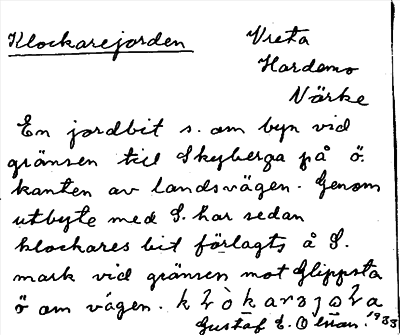 Klockarejorden Vreta
Hardemo
Närke
En jordbit s. om byn vid
gränsen till Skyberga på ö.
kanten av landsvägen. Genom
utbyte med S. har sedan
klockares bit förlagts å S.
mark vid gränsen mot Glippsta
ö om vägen.
Gustaf E. 1933